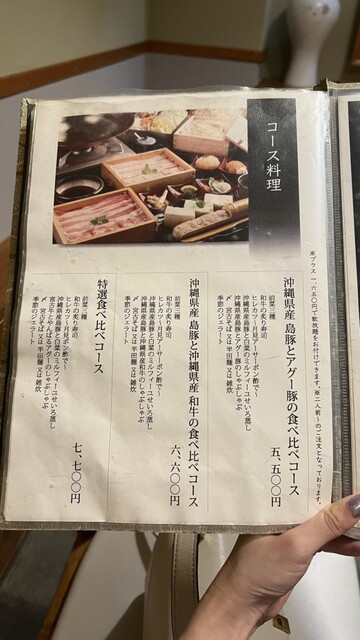 コース料理
※プラス一、六五〇円で飲放題をお付けできます。※二人前〜のご注文となっております。
沖縄県産 島豚とアグー豚の食べ比べコース
前菜三種
和牛の炙り寿司
ヒレカツ〜月見アーサーポン酢で〜
沖縄県産島豚と白菜のミルフィーユせいろ蒸し
沖縄県産島豚とアグーのしゃぶしゃぶ
〆 宮古そば又は半田麺又は雑炊
季節のジェラート
五、五〇〇円
沖縄県産 島豚と沖縄県産 和牛の食べ比べコース
前菜三種
和牛の炙り寿司
ヒレカツ〜月見アーサーポン酢で〜
沖縄県産島豚と白菜のミルフィーユせいろ蒸し
沖縄県産島豚と沖縄県産和牛のしゃぶしゃぶ
〆 宮古そば又は半田麺又は雑炊
季節のジェラート
六、六〇〇円
特選食べ比べコース
前菜三種
和牛の炙り寿司
ヒレカツ〜月見アーサーポン酢で〜
沖縄県産島豚と白菜のミルフィーユせいろ蒸し
宮古牛とやんばるアグーのしゃぶしゃぶ
〆 宮古そば又は半田麺又は雑炊
季節のジェラート
七、七〇〇円